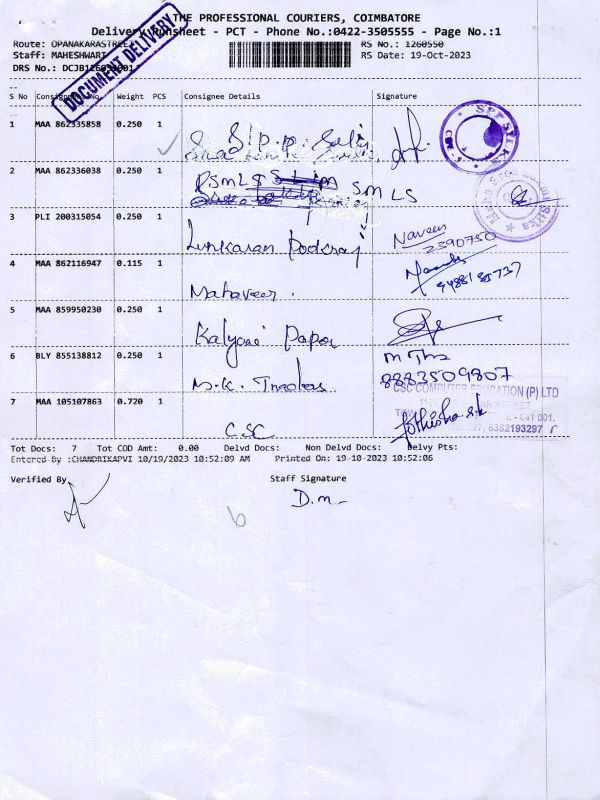 THE PROFESSIONAL COURIERS, COIMBATORE
Delivery Runsheet - PCT - Phone No.:0422-3505555 - Page No.:1
Route: OPANAKARASTREET
RS No.: 1260550
Staff: MAHESHWARI
RS Date: 19-Oct-2023
DRS No.:
DOCUMENT DELIVERY
S No Weight PCS Consignee Details Signature
1 MAA 862335858 0.250 1
S.P.P. Silks
SPP SILKS
2 MAA 862336038 0.250 1
RSMLS SMLS
3 PLI 200315054 0.250 1
Lunkaran
Naveen
2390750
4 MAA 862116947 0.115 1
Mahaveer.
5 MAA 859950230 0.250 1
Kalyani Paper
6 BLY 855138812 0.250 1
M.K.
8883509807
7 MAA 105107863 0.720 1
CSC
CSC COMPUTER EDUCATION (P) LTD
641 001.
6382193297
Jothisha s.k
Tot Docs: 7 Tot COD Amt: 0.00 Delvd Docs: Non Delvd Docs: Delvy Pts:
Entered By :CHANDRIKAPVI 10/19/2023 10:52:09 AM Printed On: 19-10-2023 10:52:06
Verified By Staff Signature
D.m
6